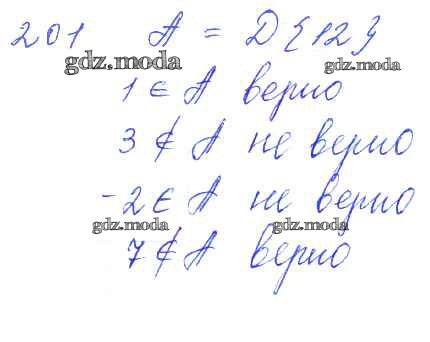 201 A = D {12}
gdz.moda gdz.moda
1 ∈ A верно
3 ∉ A не верно
-2 ∈ A не верно
gdz.moda gdz.moda
7 ∉ A верно